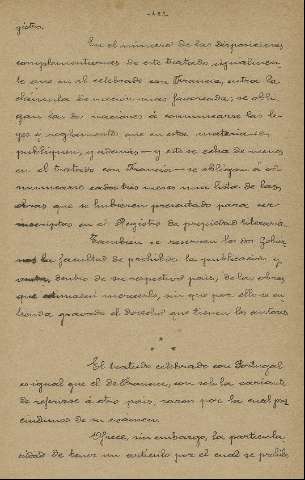 gistro.
En el número de las disposiciones
complementarias de este tratado igualmen-
te que en el celebrado con Francia, entra la
cláusula de nación mas favorecida; se obli-
gan las dos naciones á comunicarse las le-
yes y reglamentos que en esta materia se
publiquen, y además — y esto se echa de menos
en el tratado con Francia — se obligan á co-
municarse cada tres meses una lista de las
obras que se hubieren presentado para ser
inscriptas en el Registro de propiedad literaria.
Tambien se reservan los dos Gobier-
nos la facultad de prohibir la publicación y
venta, dentro de su respectivo pais, de las obras
que estimasen, sin que por ello se en-
tienda gravado el derecho que tienen los autores.
* * *
El tratado celebrado con Portugal
es igual que el de Francia, con sola la variante
de referirse á otro pais, razon por la cual pres-
cindimos de su examen.
Ofrece, sin embargo, la particula-
ridad de tener un artículo por el cual se prohibe